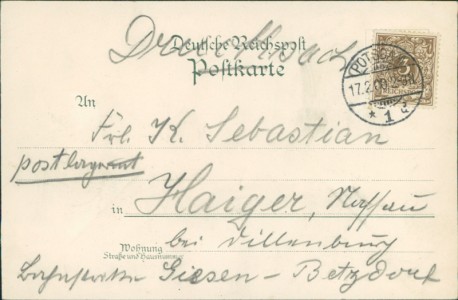 Drucksache
Deutsche Reichspost
Postkarte
POTSDAM
17.2.00
* 1 a
3
An
Frl. K. Sebastian
postlagernd
in Haiger, Nassau
Wohnung
Straße und Hausnummer
bei Dillenburg
Bahnstrecke Giesen - Betzdorf